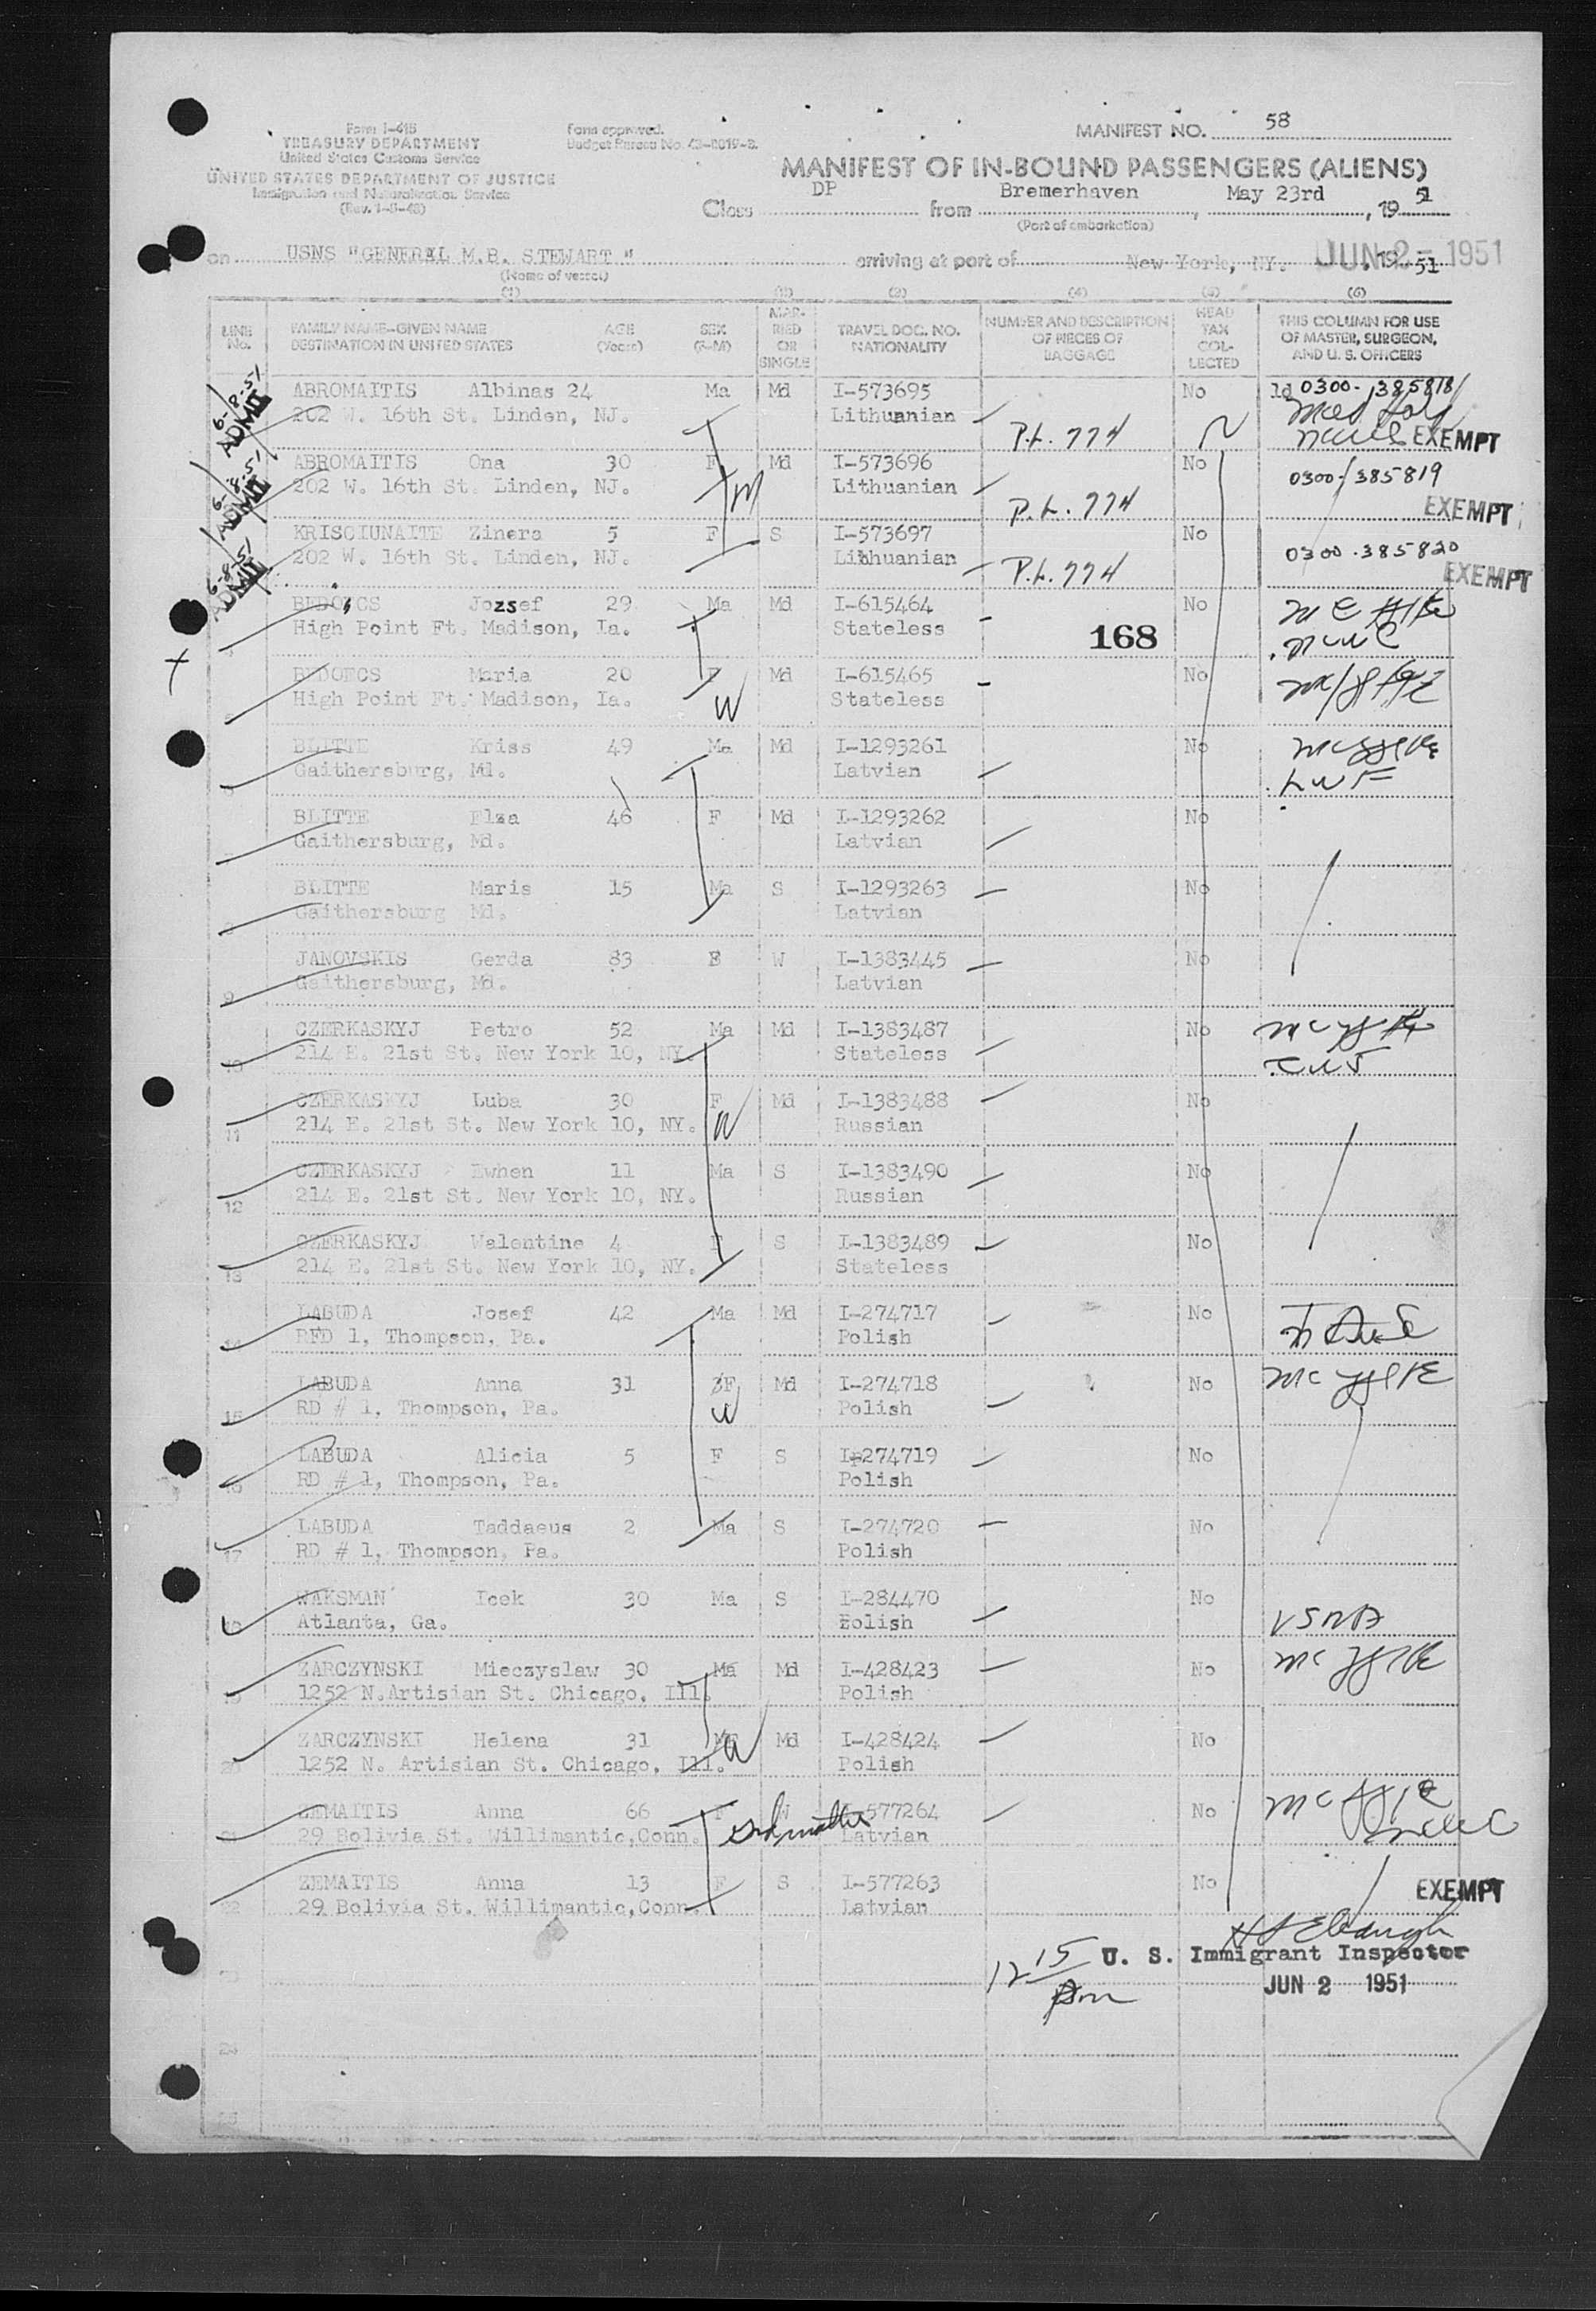 Form I-415
TREASURY DEPARTMENT
United States Customs Service
UNITED STATES DEPARTMENT OF JUSTICE
Immigration and Naturalization Service
(Rev. 1-5-48)
Form approved.
Budget Bureau No. 43-R019-2.
MANIFEST NO. 58
MANIFEST OF IN-BOUND PASSENGERS (ALIENS)
Class DP from Bremerhaven, May 23rd, 1951
(Port of embarkation)
on USNS "GENERAL M.B. STEWART" arriving at port of New York, NY. JUN 2 - 1951 , 1951
(Name of vessel)
(1) (2) (3) (4) (5) (6)
LINE No. FAMILY NAME—GIVEN NAME DESTINATION IN UNITED STATES AGE (Years) SEX (F-M) MARRIED OR SINGLE TRAVEL DOC. NO. NATIONALITY NUMBER AND DESCRIPTION OF PIECES OF BAGGAGE HEAD TAX COLLECTED THIS COLUMN FOR USE OF MASTER, SURGEON, AND U. S. OFFICERS
6-8-51 ADMIT ABROMAITIS Albinas 24 Ma Md I-573695 No 0300-385818
202 W. 16th St. Linden, NJ. Lithuanian P.L. 774 EXEMPT
6-8-51 ADMIT ABROMAITIS Ona 30 F Md I-573696 No 0300-385819
202 W. 16th St. Linden, NJ. Lithuanian P.L. 774 EXEMPT
6-8-51 ADMIT KRISCIUNAITE Zinera 5 F S I-573697 No 0300.385820
202 W. 16th St. Linden, NJ. Lithuanian P.L. 774 EXEMPT
BEDOECS Jozsef 29 Ma Md I-615464 No
4 High Point Ft. Madison, Ia. Stateless 168
BEDOECS Maria 20 F Md I-615465 No
5 High Point Ft. Madison, Ia. W Stateless
BLITTE Kriss 49 Ma Md I-1293261 No
6 Gaithersburg, Md. Latvian LWF
BLITTE Elza 46 F Md I-1293262 No
7 Gaithersburg, Md. Latvian
BLITTE Maris 15 Ma S I-1293263 No
8 Gaithersburg Md. Latvian
JANOVSKIS Gerda 83 F W I-1383445 No
9 Gaithersburg, Md. Latvian
CZERKASKYJ Petro 52 Ma Md I-1383487 No
10 214 E. 21st St. New York 10, NY. Stateless
CZERKASKYJ Luba 30 F Md I-1383488 No
11 214 E. 21st St. New York 10, NY. W Russian
CZERKASKYJ Ewhen 11 Ma S I-1383490 No
12 214 E. 21st St. New York 10, NY. Russian
CZERKASKYJ Walentine 4 F S I-1383489 No
13 214 E. 21st St. New York 10, NY. Stateless
LABUDA Josef 42 Ma Md I-274717 No
14 RFD 1, Thompson, Pa. Polish
LABUDA Anna 31 F Md I-274718 No
15 RD # 1, Thompson, Pa. W Polish
LABUDA Alicia 5 F S I-274719 No
16 RD # 1, Thompson, Pa. Polish
LABUDA Taddaeus 2 Ma S I-274720 No
17 RD # 1, Thompson, Pa. Polish
WAKSMAN Icek 30 Ma S I-284470 No
18 Atlanta, Ga. Polish USNA
ZARCZYNSKI Mieczyslaw 30 Ma Md I-428423 No
19 1252 N.Artisian St. Chicago, Ill. Polish
ZARCZYNSKI Helena 31 W Md I-428424 No
20 1252 N. Artisian St. Chicago, Ill. Polish
ZEMAITIS Anna 66 F W I-577264 No
21 29 Bolivia St. Willimantic,Conn. Grdmother Latvian
ZEMAITIS Anna 13 F S I-577263 No EXEMPT
22 29 Bolivia St. Willimantic,Conn. Latvian
12 15 pm U. S. Immigrant Inspector
23 JUN 2 1951
24
25